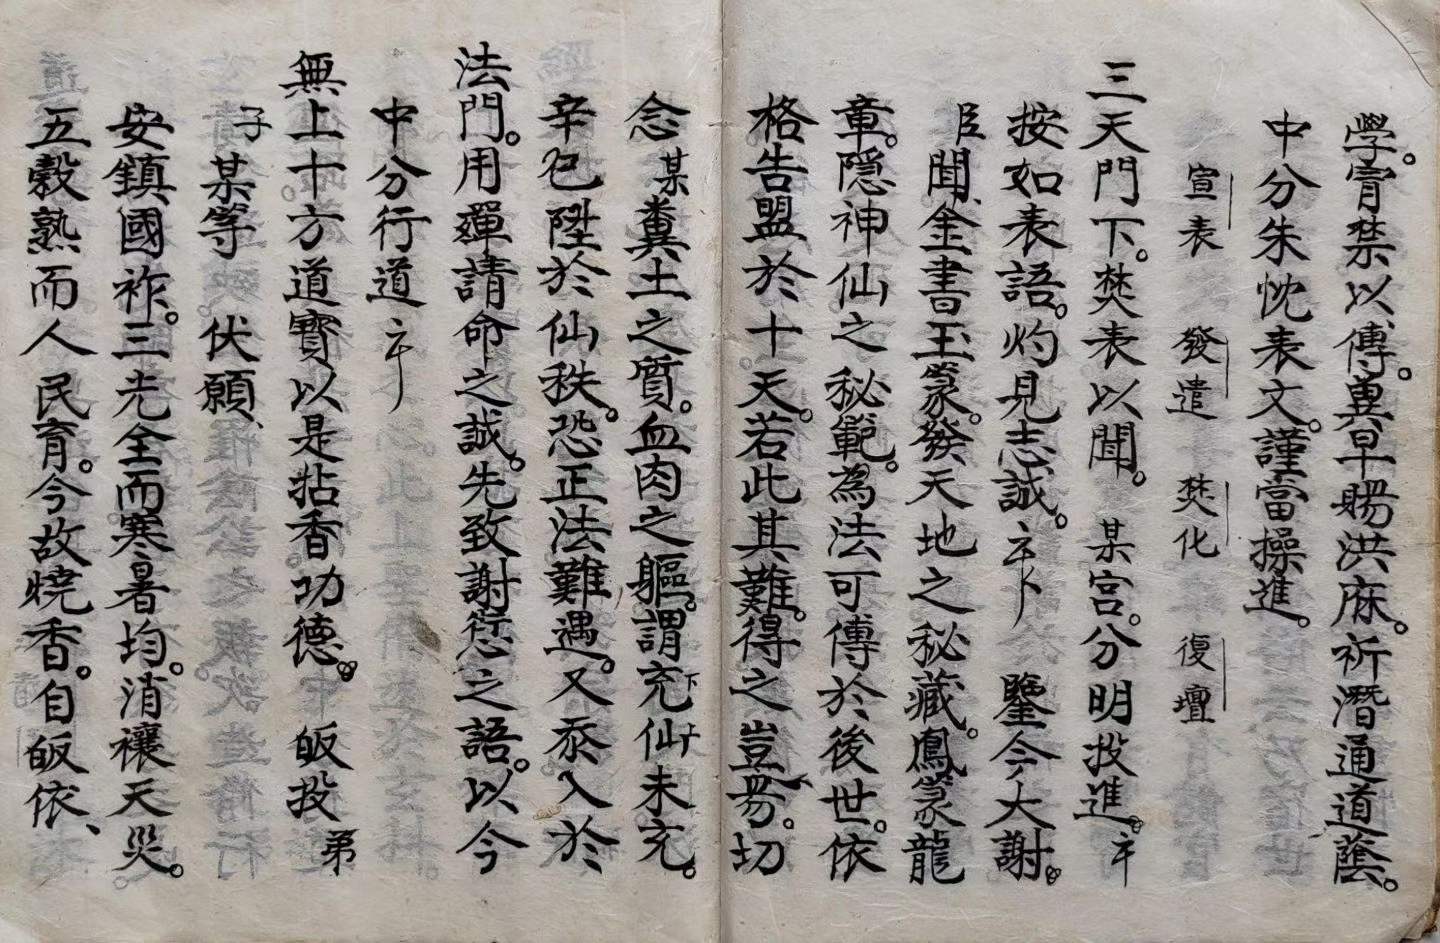 學。膏禁以傳。冀早賜洪庥。祈潛通道蔭。
中分朱忱表文。謹當操進。
宣表 發遣 焚化 復壇
三天門下。焚表以聞。某宮。分明投進。
按如表語。灼見志誠。 鑒今大謝。
臣聞、金書玉篆。發天地之秘藏。鳳篆龍
章。隱神仙之秘範。為法可傳於後世。依
格告盟於十天。若此其難。得之豈易。切
念某糞土之質。血肉之軀。謂充下仙才未充。
辛已陞於仙秩。恐正法難遇。又忝入於
法門。用殫請命之誠。先致謝愆之語。以今
中分行道
無上十方道寶以是拈香功德。皈投 弟
子某等 伏願、
安鎮國祚。三光全而寒暑均。消禳天災。
五穀熟而人民育。今故燒香。自皈依、